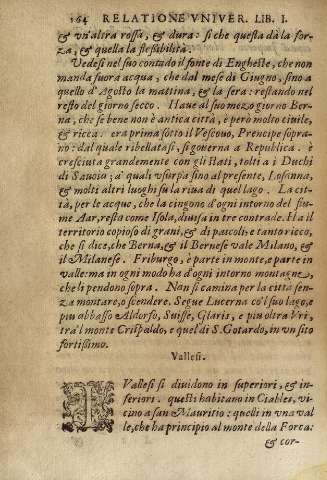 164 RELATIONE VNIVER. LIB. I.
& vn'altra rossa, & dura: sì che questa dà la for-
za, & quella la flessibilità.
Vedesi nel suo contado il fonte di Enghesle, che non
manda fuora acqua, che dal mese di Giugno, sino a
quello d'Agosto la mattina, & la sera: restando nel
resto del giorno secco. Haue al suo mezo giorno Ber-
na, che se bene non è antica città, è però molto ciuile,
& ricca. era prima sotto il Vescouo, Prencipe sopra-
no: dal quale ribellatasi, si gouerna a Republica. è
cresciuta grandemente con gli stati, tolti a i Duchi
di Sauoia; a' quali vsurpa sino al presente, Losanna,
& molti altri luoghi su la riua di quel lago. La cit-
tà, per le acque, che la cingono d'ogni intorno del fiu-
me Aar, resta come Isola, diuisa in tre contrade. Ha il
territorio copioso di grani, & di pascoli; e tanto ricco,
che si dice, che Berna, & il Bernese vale Milano, &
il Milanese. Friburgo, è parte in monte, e parte in
valle: ma in ogni modo ha d'ogni intorno montagne,
che li pendono sopra. Non si camina per la città sen-
za montare, o scendere. Segue Lucerna co'l suo lago, e
piu abbasso Aldorfo, Suisse, Glaris, e piu oltra Vri,
tra'l monte Crispaldo, e quel di S. Gotardo, in vn sito
fortissimo.
Vallesi.
I Vallesi si diuidono in superiori, & in-
feriori. questi habitano in Ciables, vi-
cino a san Mauritio: quelli in vna val
le, che ha principio al monte della Forca:
& cor-